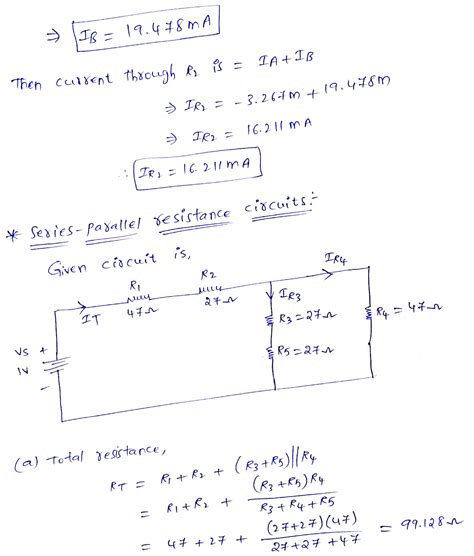 ⇒ IB = 19.478mA
Then current through R2 is = IA + IB
⇒ IR2 = -3.267m + 19.478m
⇒ IR2 = 16.211mA
∴ IR2 = 16.211mA
* Series-parallel resistance circuits:-
Given circuit is,
IR4
R1
R2
IT
47Ω
27Ω
IR3
R3=27Ω
R4 = 47Ω
R5=27Ω
VS +
1V
-
(a) Total resistance,
RT = R1 + R2 + (R3+R5)||R4
= R1 + R2 + (R3+R5)R4 / R3 + R4 + R5
= 47 + 27 + (27+27)(47) / 27 + 27 + 47 = 99.128Ω